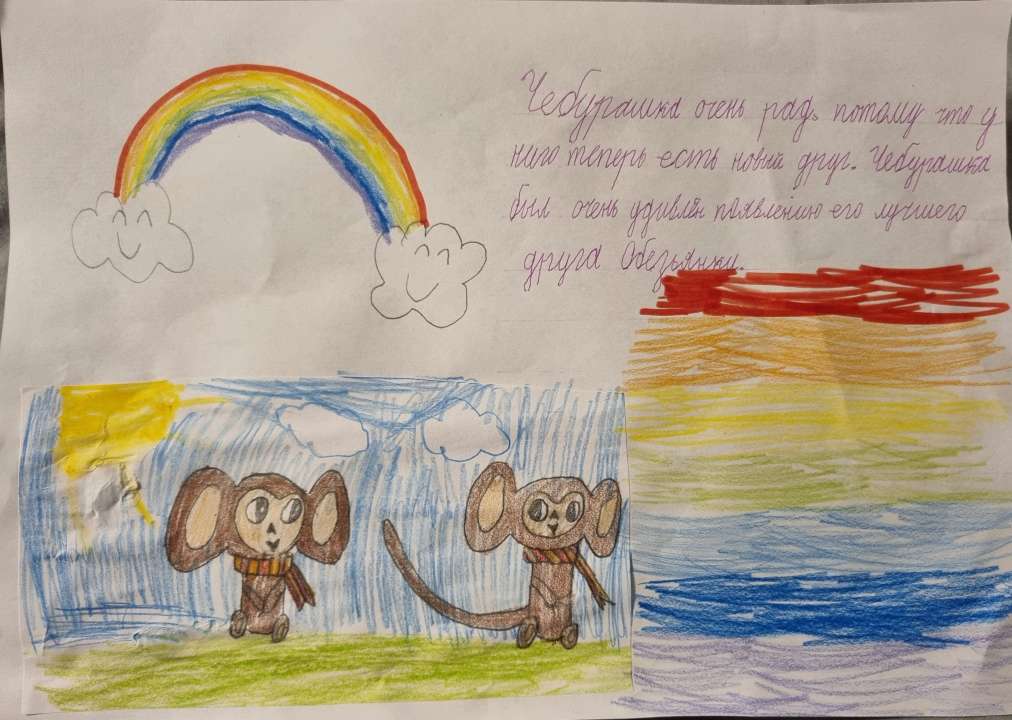 Чебурашка очень рад, потому что у
ниго теперь есть новый друг. Чебурашка
был очень удивлён появлению его лучшего
друга Обезьянки.